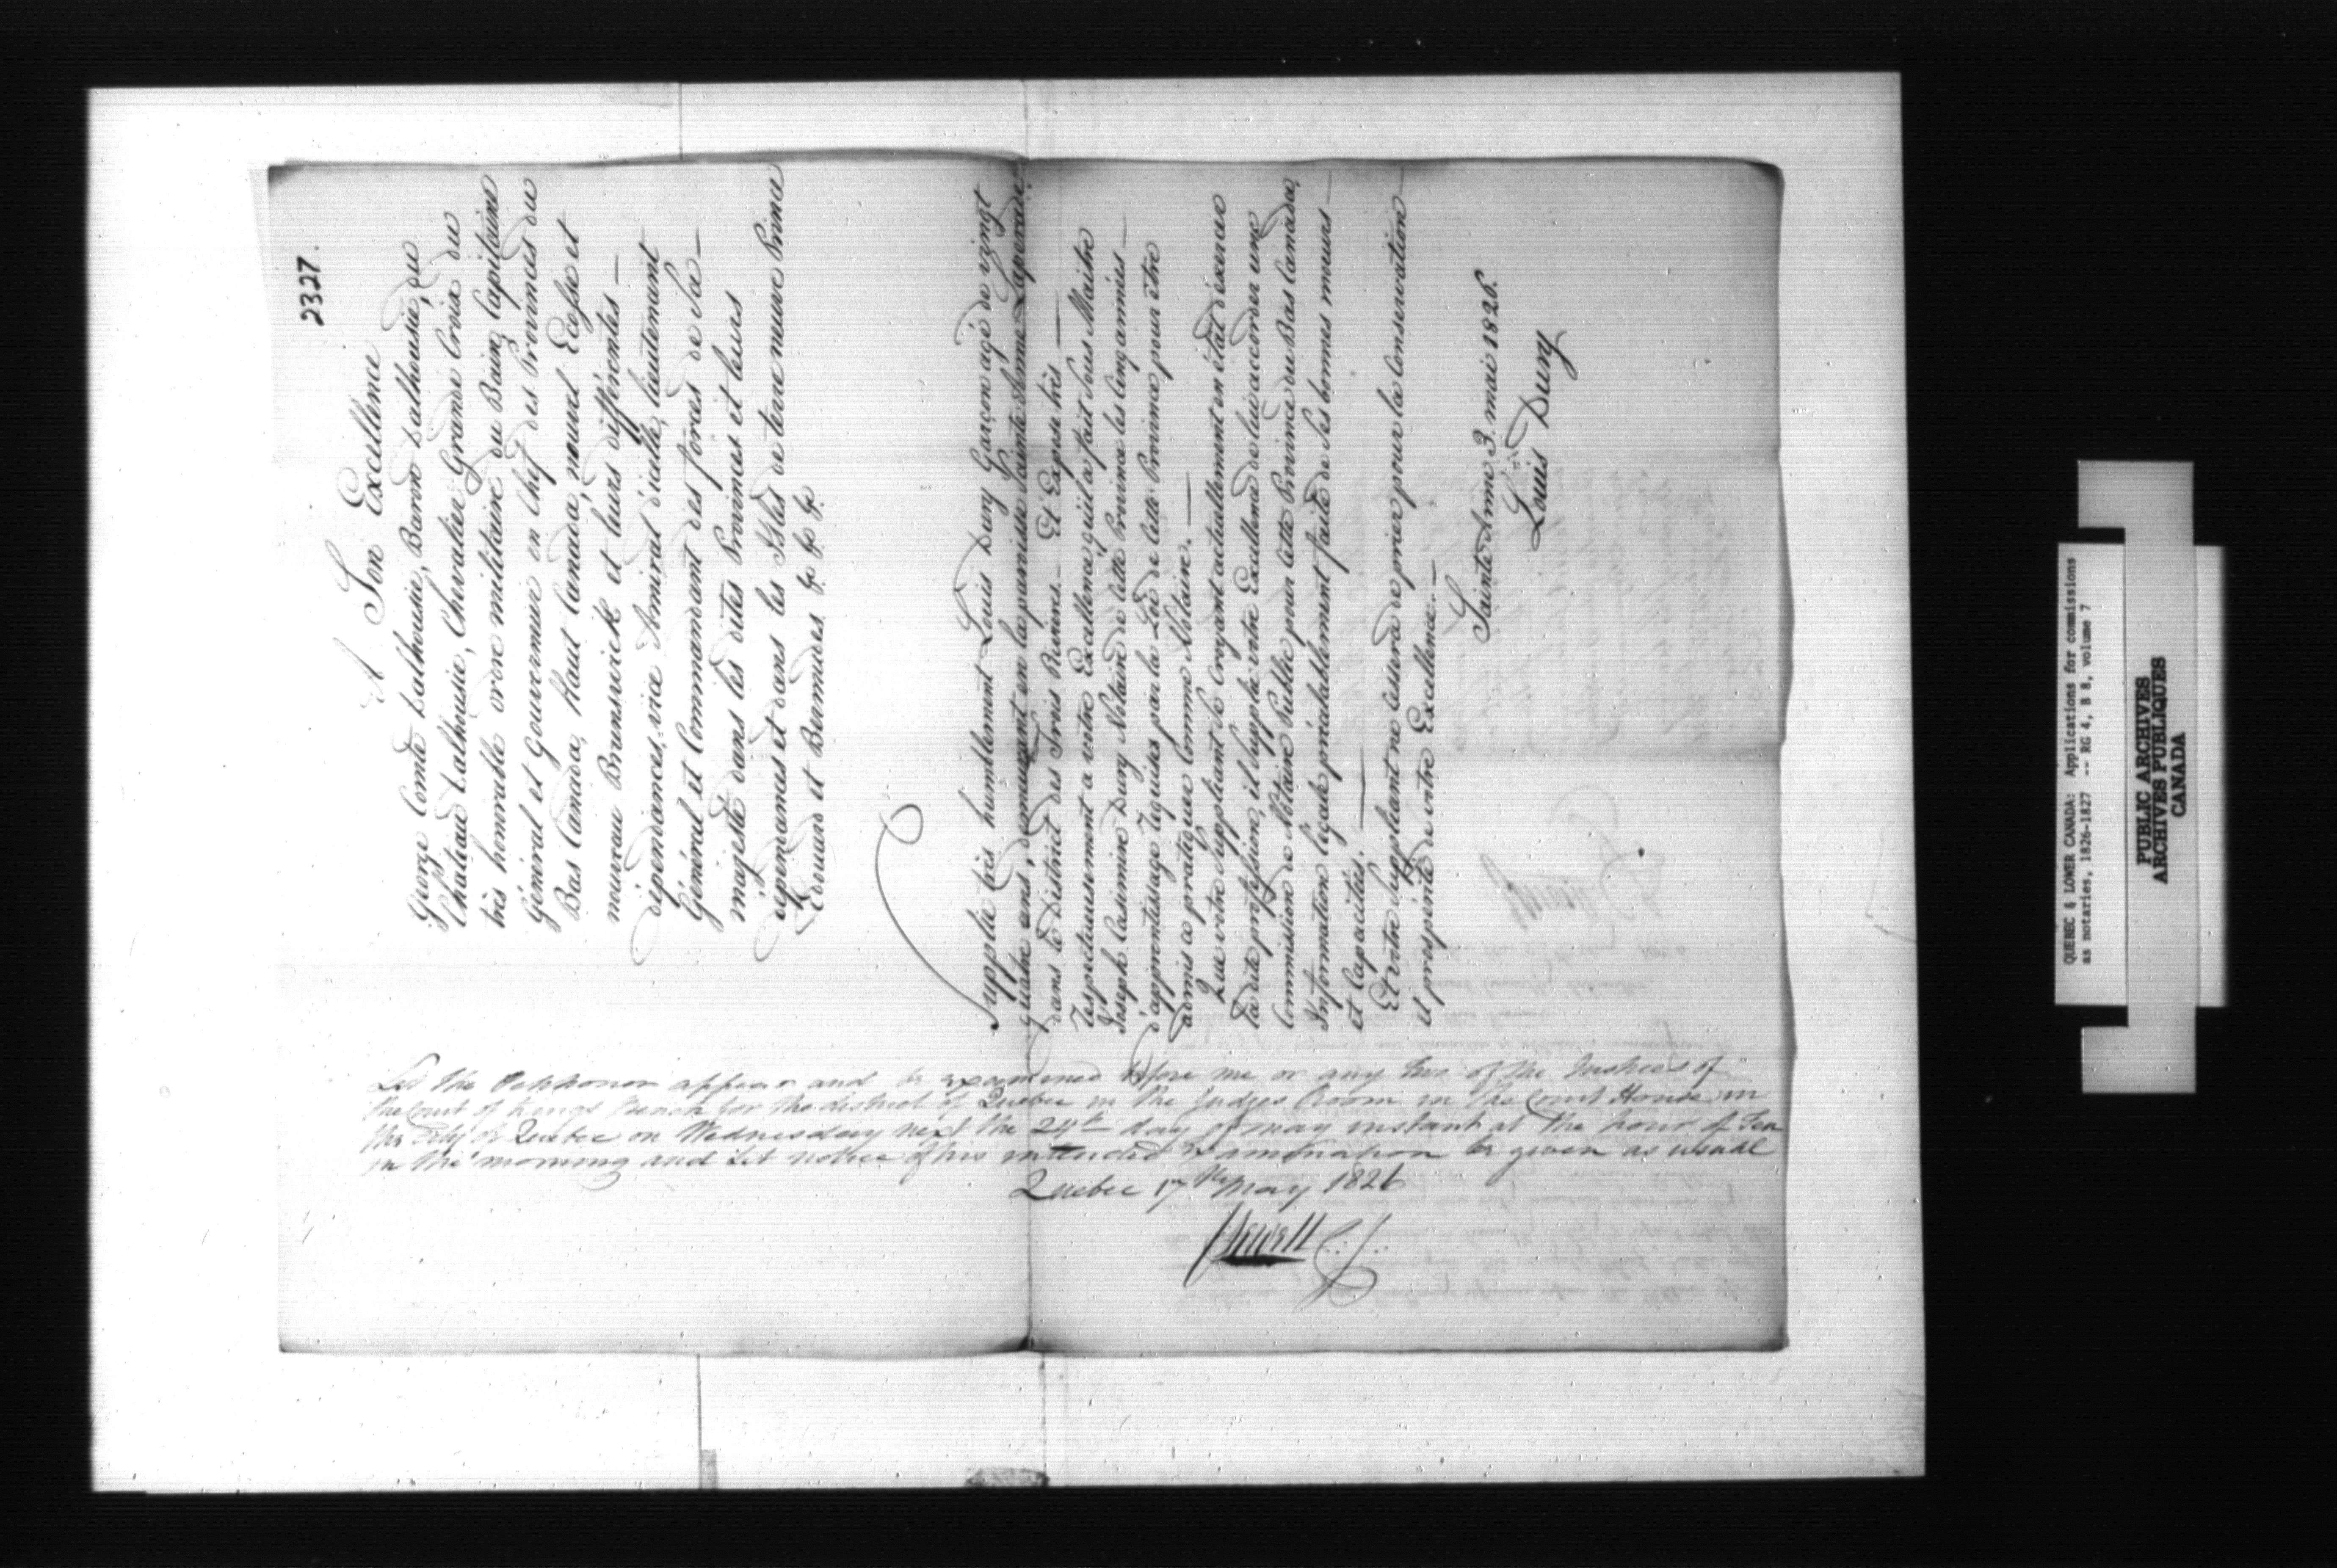 2327.
A Son Excellence
George Comte Dalhousie, Baron Dalhousie, du
Chateau Dalhousie, Chevalier Grande Croix du
très honorable ordre militaire du Bain, Capitaine
Général et Gouverneur en Chef des Provinces du
Bas Canada, Haut Canada, nouvel Ecosse et
nouveau Brunswick et leurs différentes —
dépendances, vice Amiral d'icelle, lieutenant
Général et Commandant des forces de Sa —
majesté dans les dites Provinces et leurs
dépendances et dans les Isles de terre neuve Prince
Edouard et Bermudes. &c &c &c.
Supplie très humblement Louis Dury Garçon agé de vingt
quatre ans, demeurant en la paroisse Sainte Anne Laperade
dans le District des Trois Rivieres. — Et Expose très —
respectueusement a votre Excellence qu'il a fait sous Maitre
Joseph Casimire Dury Notaire de cette Province les cinq années —
d'apprentissage requises par la Loi de cette Province pour être
admis a pratiquer comme Notaire. —
Que votre Suppliant se croyant actuellement en état d'exercer
la dite profession, il Supplie votre Excellence de lui accorder une
Commission de Notaire Public pour cette Province du Bas Canada,
Information légale préalablement faite de ses bonnes mœurs —
et Capacités. —
Et votre Suppliant ne cessera de prier pour la Conservation —
et prospérité de votre Excellence. —
Sainte Anne 3. mai 1826.
Louis Dury
Let the Petitioner appear and be examined before me or any two of the Justices of
the Court of Kings Bench for the district of Quebec in the Judges Room in the Court House in
the City of Quebec on Wednesday next the 24th day of May instant at the hour of Ten
in the morning and let notice of his intended examination be given as usual
Quebec 17th May 1826
Sewell C:J:
QUEBEC & LOWER CANADA: Applications for commissions
as notaries, 1826-1827 -- RG 4, B 8, volume 7
PUBLIC ARCHIVES
ARCHIVES PUBLIQUES
CANADA